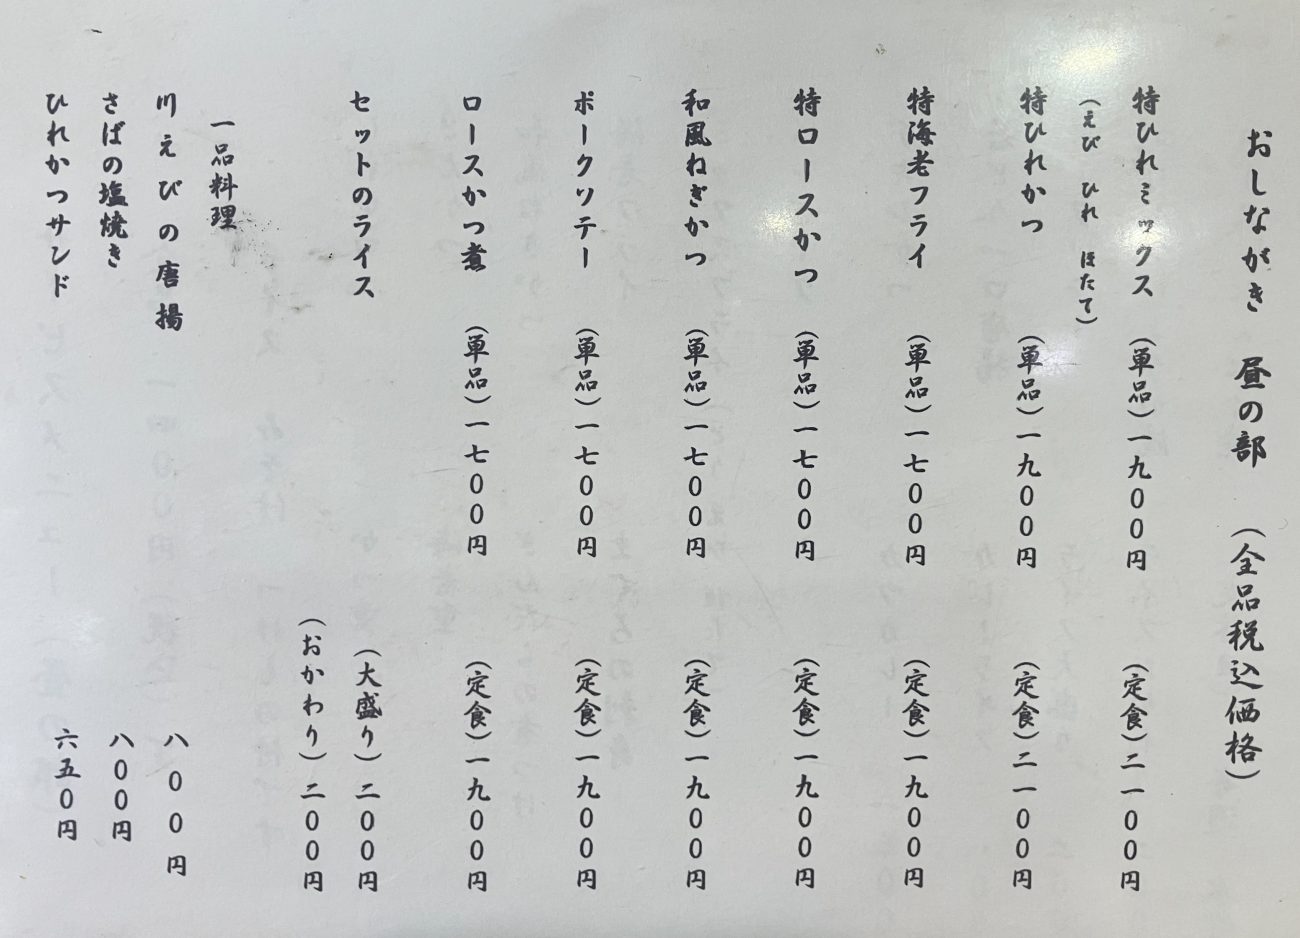 おしながき 昼の部 (全品税込価格)
特ひれミックス (単品)一九00円 (定食)二一00円
(えび ひれ ほたて)
特ひれかつ (単品)一九00円 (定食)二一00円
特海老フライ (単品)一七00円 (定食)一九00円
特ロースかつ (単品)一七00円 (定食)一九00円
和風ねぎかつ (単品)一七00円 (定食)一九00円
ポークソテー (単品)一七00円 (定食)一九00円
ロースかつ煮 (単品)一七00円 (定食)一九00円
セットのライス (大盛り)二00円
(おかわり)二00円
一品料理
川えびの唐揚 八00円
さばの塩焼き 八00円
ひれかつサンド 六五0円